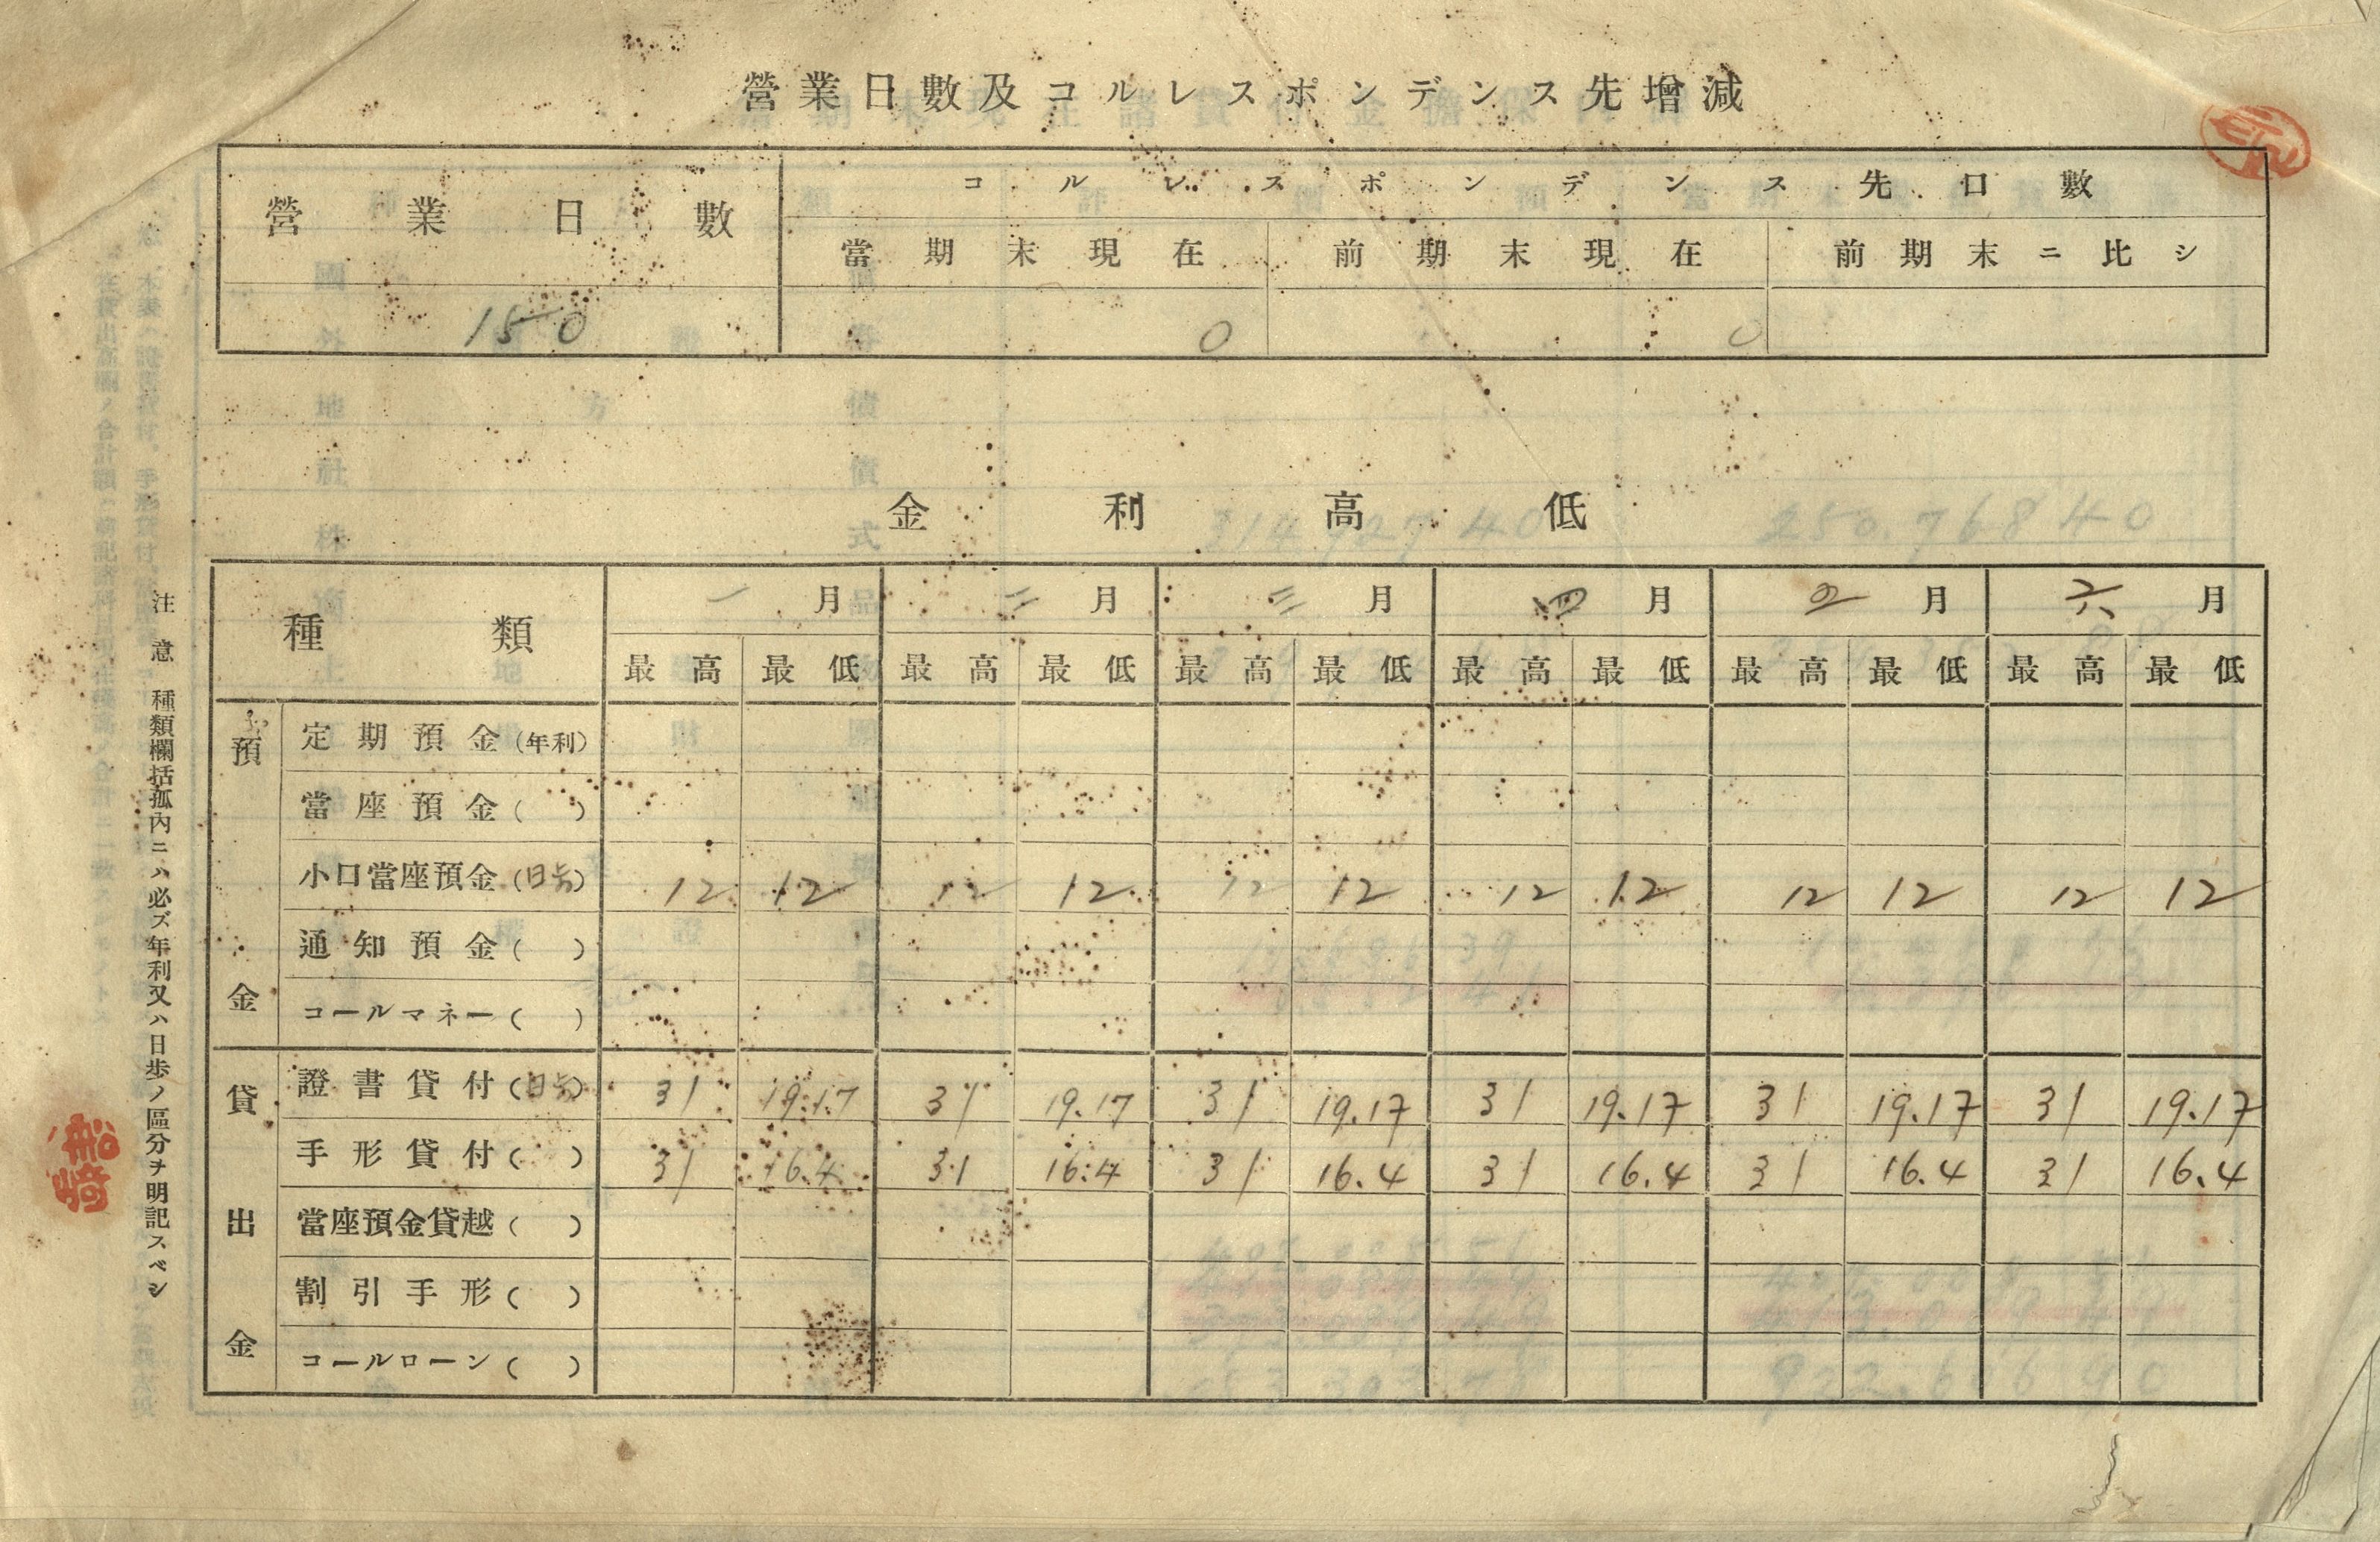 營業日數及コルレスポンデンス先增減
營業日數 コルレスポンデンス先口數
當期末現在 前期末現在 前期末ニ比シ
150 0 0
金利高低
種類 一月 二月 三月 四月 五月 六月
最高 最低 最高 最低 最高 最低 最高 最低 最高 最低 最高 最低
預金
定期預金(年利)
當座預金( )
小口當座預金(日歩) 12 12 12 12 12 12 12 12 12 12 12 12
通知預金( )
コールマネー( )
貸出金
證書貸付(日歩) 31 19.17 31 19.17 31 19.17 31 19.17 31 19.17 31 19.17
手形貸付( ) 31 16.4 31 16.4 31 16.4 31 16.4 31 16.4 31 16.4
當座預金貸越( )
割引手形( )
コールローン( )
注意 種類欄括孤內ニハ必ズ年利又ハ日歩ノ區分ヲ明記スベシ
船崎